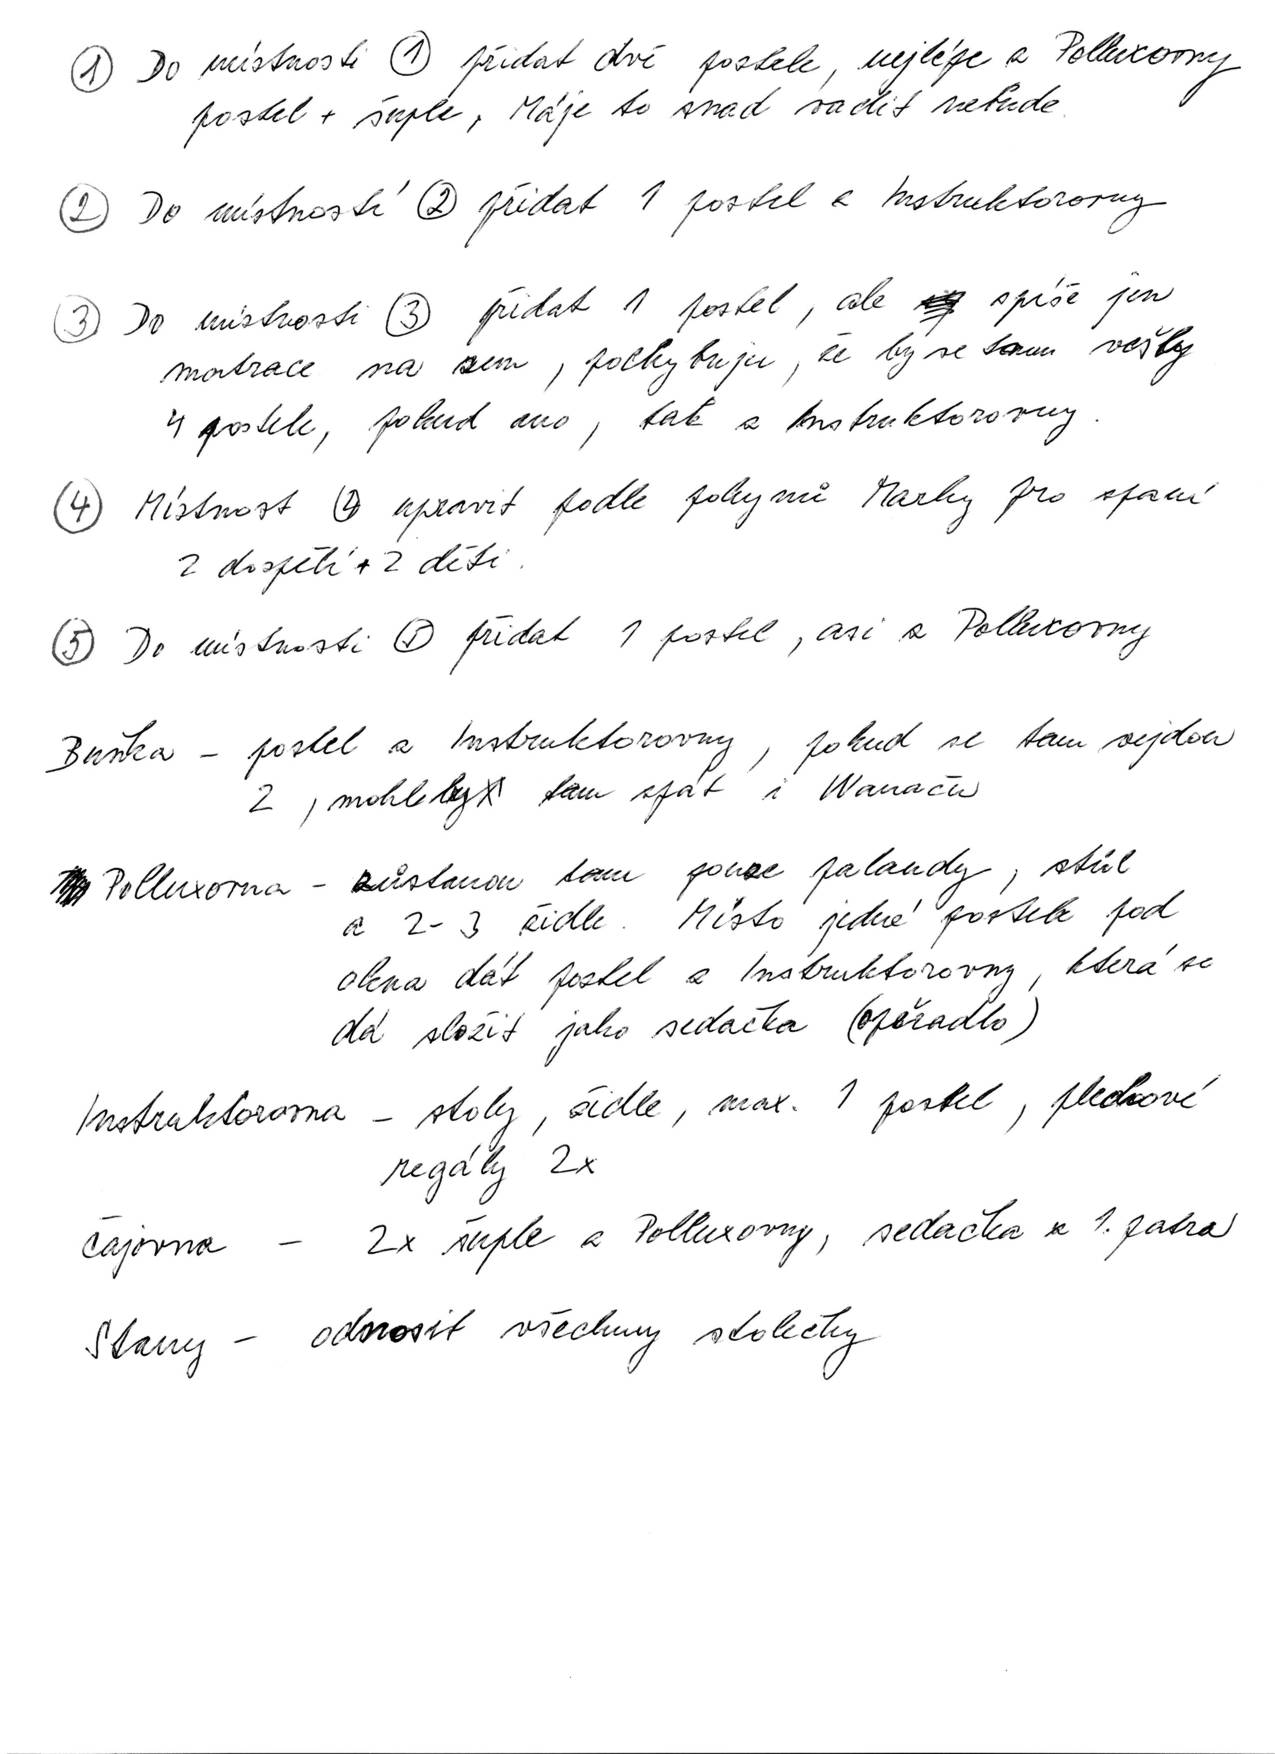 ① Do místnosti ① přidat dvě postele, nejlépe z Polluxovny
postel + šuple, Máje to snad vadit nebude.
② Do místnosti ② přidat 1 postel z Instruktorovny
③ Do místnosti ③ přidat 1 postel, ale spíše jen
matrace na zem, pochybuju, že by se tam vešly
4 postele, pokud ano, tak z Instruktorovny.
④ Místnost ④ upravit podle pokynů Marky pro spaní
2 dospělí + 2 děti.
⑤ Do místnosti ⑤ přidat 1 postel, asi z Polluxovny
Buňka - postel z Instruktorovny, pokud se tam vejdou
2, mohl by tam spát i Wanaču
Polluxovna - zůstanou tam pouze palandy, stůl
a 2-3 židle. Místo jedné postele pod
okna dát postel z Instruktorovny, která se
dá složit jako sedačka (opěradlo)
Instruktorovna - stoly, židle, max. 1 postel, plechové
regály 2x
Čajovna - 2x šuple z Polluxovny, sedačka z 1. patra
Stany - odnosit všechny stolečky